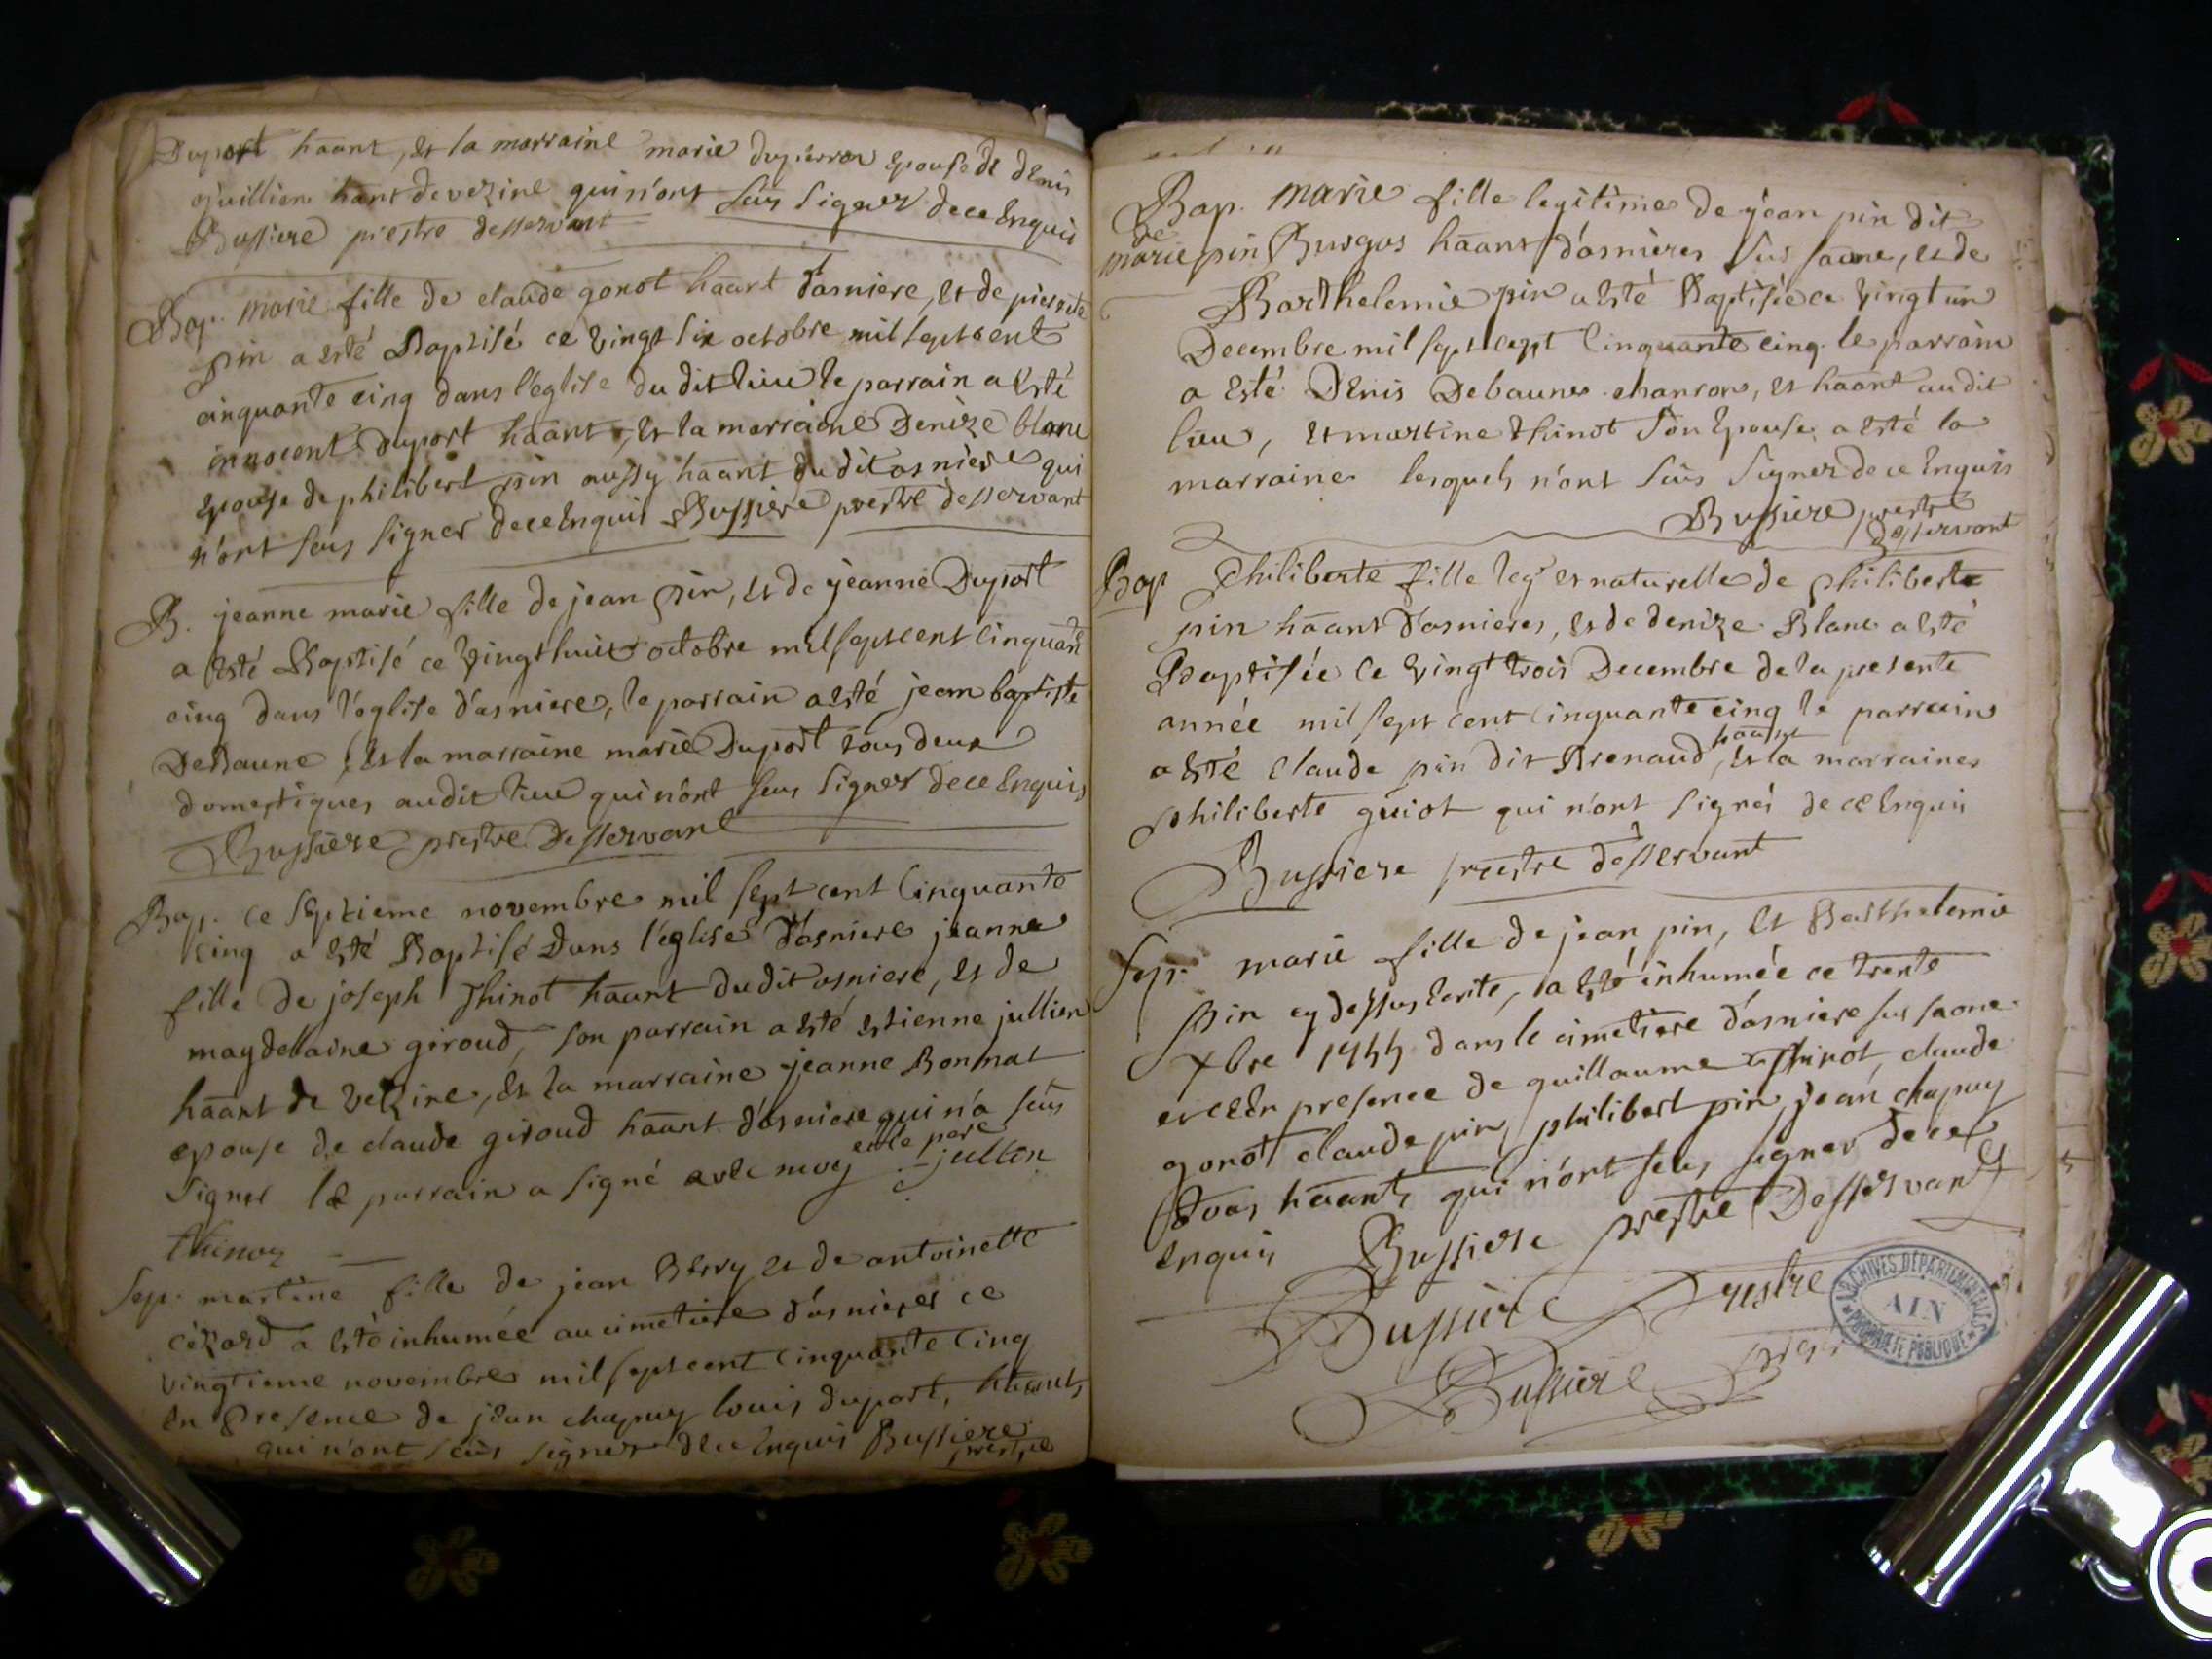 Duport haant, et la marraine marie dupierron epouse de denis
guillien hant de vezine qui n'ont sçus signer de ce enquis
Bussiere prestre desservant
Bap. marie fille de claude gonot haant d'asniere, et de pierrette
pin a esté Baptisé ce vingt six octobre mil sept cent
cinquante cinq dans l'eglise du dit lieu le parrain a esté
innocent Duport haant, et la marraine Denize blanc
epouse de philibert pin aussy haant du dit asniere qui
n'ont sçus signer de ce enquis Bussiere prestre desservant
B. jeanne marie fille de jean pin, et de jeanne Duport
a esté Baptisé ce vingt huit octobre mil sept cent cinquante
cinq dans l'eglise d'asniere, le parrain a esté jean baptiste
DeBaune, et la marraine marie Duport tous deux
domestiques audit lieu qui n'ont sçus signer de ce enquis
Bussiere prestre Desservant
Bap. ce septieme novembre mil sept cent cinquante
cinq a esté Baptisé Dans l'église d'asniere jeanne
fille de joseph Thinot haant du dit asniere, et de
magdellaine giroud, son parrain a esté estienne jullien
haant de vezine, et la marraine jeanne Bonnat
epouse de claude giroud haant d'asniere qui n'a sçus
signer le parrain a signé avec moy et le pere jullien
thinoz
Sep. martine fille de jean Berry et de antoinette
cézard a esté inhumée au cimetiere d'asnieres ce
vingtieme novembre mil sept cent cinquante cinq
En Presence de jean chapuy louis duport, haants
qui n'ont sçus signer de ce enquis Bussiere
prestre
Bap. marie fille legitime de jean pin dit
de
marie pin Burgos haant d'asnieres sus saone, et de
Barthelemie pin a esté Baptisée ce vingt un
Decembre mil sept cept cinquante cinq. le parrain
a esté Denis Debaune charron, et haant audit
lieu, et martine thinot son epouse a esté la
marraine lesquels n'ont sçus signer de ce enquis
Bussiere prestre
desservant
Bap Philiberte fille leg et naturelle de philibert
pin haant d'asnieres, et de denize Blanc a esté
Baptisée ce vingt trois Decembre de la presente
année mil sept cent cinquante cinq le parrain
a esté claude pin dit Renaud, haant et la marraine
philiberte guiot qui n'ont signés de ce enquis
Bussiere prestre desservant
Sep. marie fille de jean pin, et Barthelemie
pin cy dessus ecrite, a esté inhumée ce trente
xbre 1755 dans le cimetiere d'asniere sus saone
et ce en presence de guillaume thinot, claude
gonot claude pin, philibert pin, jean chapuy
tous haants qui n'ont sçus signer de ce
enquis Bussiere prestre Desservant
Bussiere Prestre
Bussiere
ARCHIVES DÉPARTEMENTALES
AIN
PROPRIÉTÉ PUBLIQUE